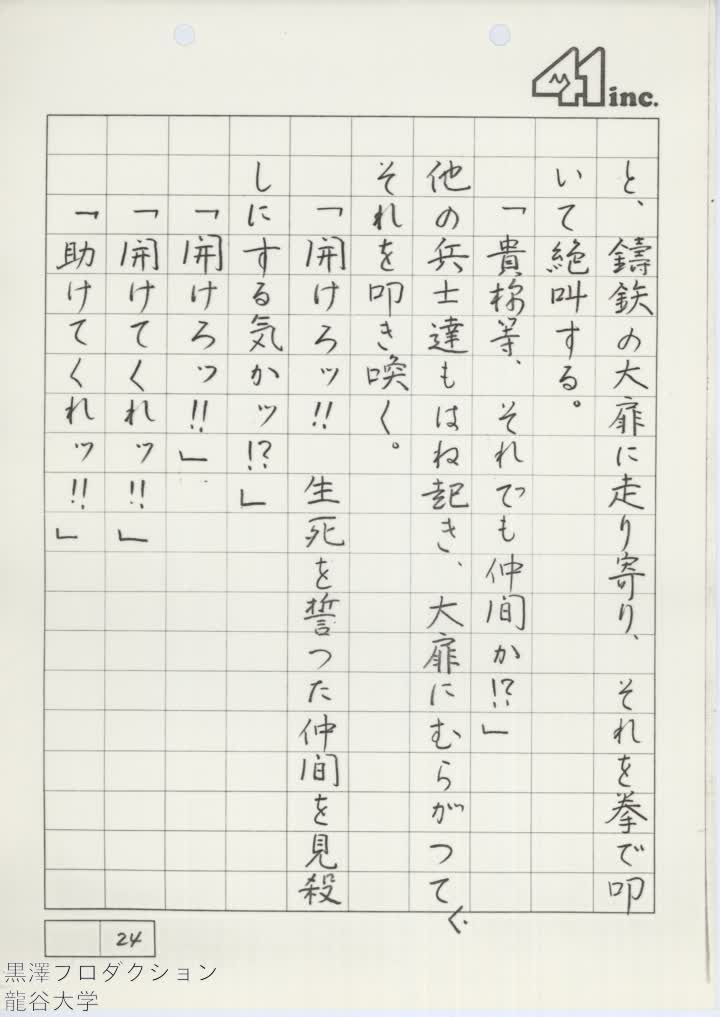 41 inc.
と、鋳鉄の大扉に走り寄り、それを拳で叩
いて絶叫する。
「貴様等、それでも仲間か!?」
他の兵士達もはね起き、大扉にむらがつて、
それを叩き喚く。
「開けろッ!!　生死を誓つた仲間を見殺
しにする気かッ!?」
「開けろッ!!」
「開けてくれッ!!」
「助けてくれッ!!」
24
黒澤プロダクション
龍谷大学